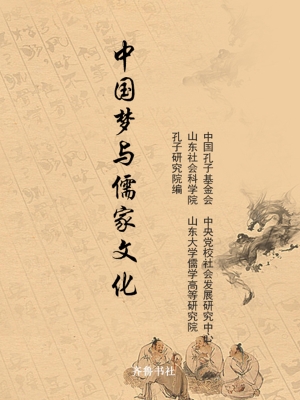 中国梦与儒家文化
中国孔子基金会 中央党校社会发展研究中心
山东社会科学院 山东大学儒学高等研究院
孔子研究院编
齐鲁书社